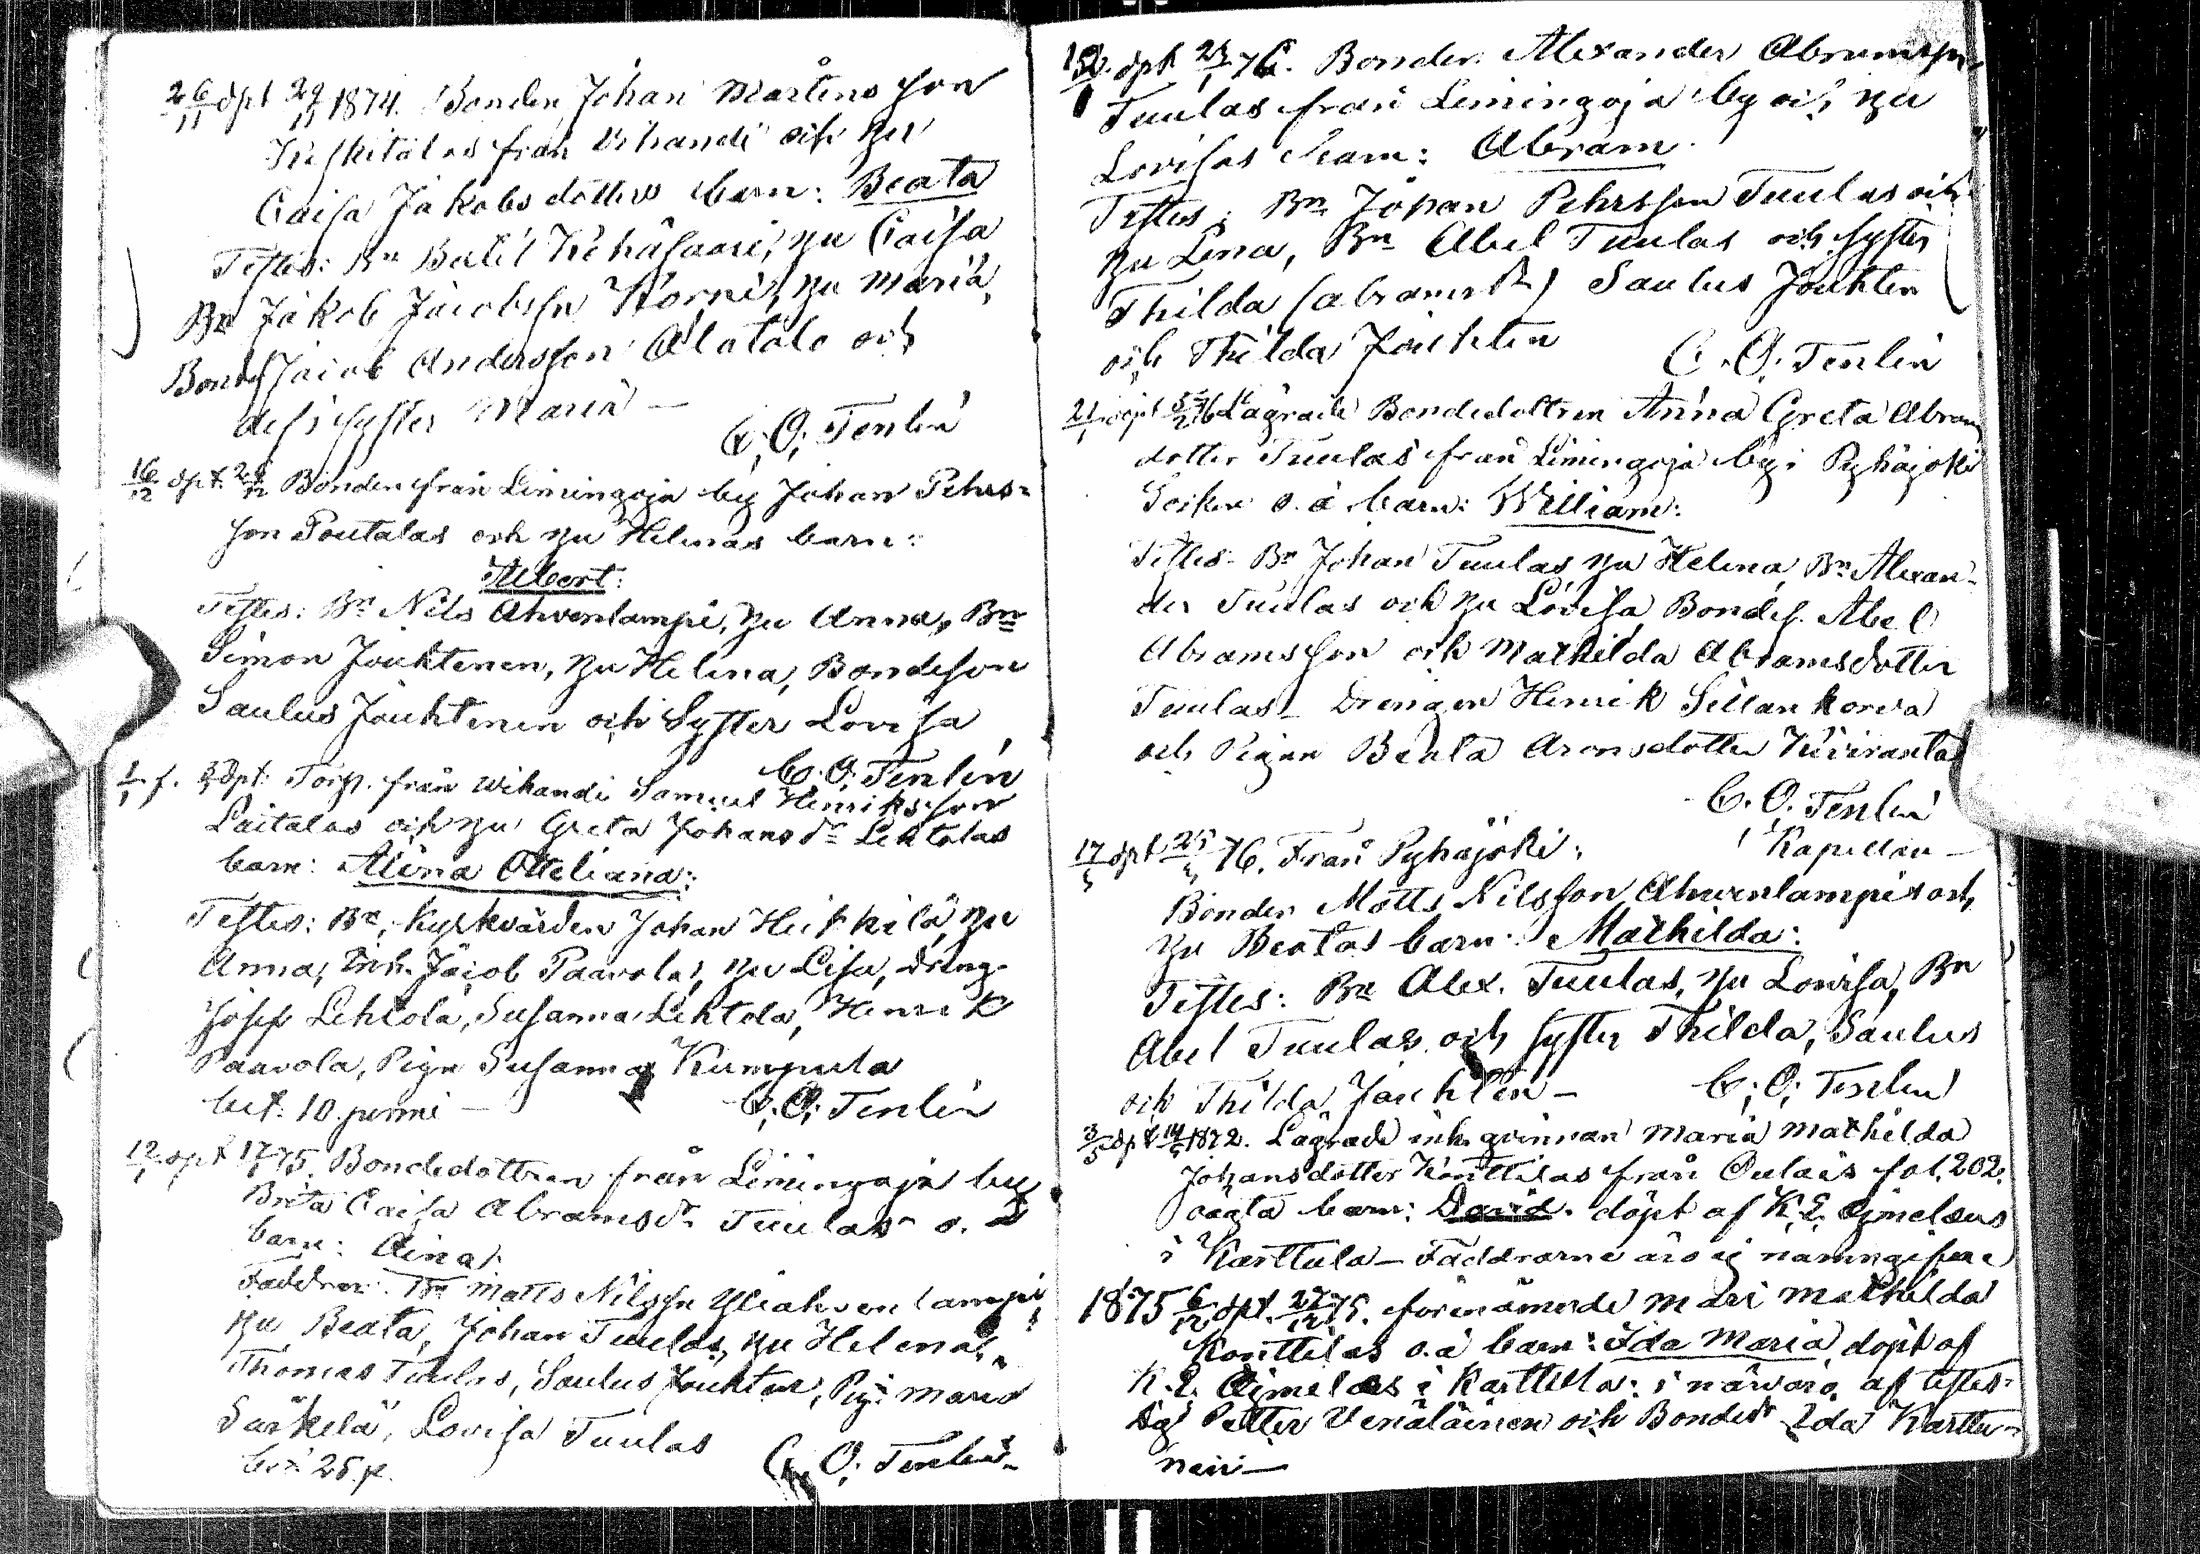 26/11 dpt 29/11 1874. Bonden Johan Mårtensson
Keskitalos från Vihandi och hu
Caisa Jakobsdotters barn: Beata
Testes: Bn Bertil Kehusaari, hu Caisa
Bn Jakob Jacobssn Korpi, hu Maria,
Bondes. Jacob Andersson Alatalo och
dess syster Maria —
C. O. Tenlén
16/12 dpt. 28/12 Bonden från Limingoja by Johan Pehrs-
son Poutalas och hu Helenas barn:
Albert:
Testes: Bn Nils Ahvenlampi, hu Anna, Bn
Simon Jouhtenen, hu Helena, Bondeson
Saulus Jouhtenen och Syster Lovisa
C. O. Tenlén
1/1 f. 3/1 dpt: Torp. från Wihandi Samuel Henriksson
Laitalas och hu Greta Johansdr Lehtolas
barn: Alina Otteliana:
Testes: Bn, Kyrkvärden Johan Heikkilä, hu
Anna, Inh. Jacob Paavola, hu Lisa, Dräng.
Josef Lehtola, Susanna Lehtola, Henrik
Paavola, Pign Susanna Kumpula
bet. 10 penni —
C. O. Tenlén
12/1 dpt 17/1 75. Bondedottren från Limingoja by
Brita Caisa Abramsdr Tuulas o. ä
barn: Aina:
Faddrar: Bn Matts Nilssn Yliahvenlampi,
hu Beata, Johan Tuulas, hu Helena,
Thomas Tuulas, Saulus Jouhten, Pig. Maria
Särkelä, Lovisa Tuulas
bet 25 p.
C. O. Tenlén
dpt 23/1 76. Bonden Alexander Abramssons
Tuulas från Limingoja by och hu
Lovisas barn: Abram.
Testes: Bn Johan Pehrsson Tuulas och
hu Lena, Bn Abel Tuulas och syster
Thilda (abramsdr) Saulus Jouhten
och Thilda Jouhten
C. O. Tenlén
21/1 dpt 5/2 76 Lägrade Bondedottren Anna Greta Abram
dotter Tuulas från Limingoja by i Pyhäjoki
Socken o. ä barn: William:
Testes: Bn Johan Tuulas hu Helena, Bn Alexan-
der Tuulas och hu Lovisa, Bondes. Abel
Abramsson och Mathilda Abramsdotter
Tuulas — Drengen Henrik Sillankorva
och Pigan Beata Aronsdotter Kiviranta
C. O. Tenlén
Kapellan —
17/5 dpt 25/5 76. Från Pyhäjoki:
Bonden Matts Nilsson Ahvenlampis och
hu Beatas barn: Mathilda:
Testes: Bn Alex. Tuulas, hu Lovisa, Bn
Abel Tuulas och syster Thilda, Saulus
och Thilda Jouhten —
C. O. Tenlén
3/5 dpt 14/5 1872. Lägrade inh. qvinnan Maria Mathilda
Johansdotter Konttilas från Oulais fol. 202.
oägta barn: David. döpt af K. E. Ajmelæus
i Karttula — Faddrarne äro ej namngifne
1875 6/12 dpt. 27/12 75. förenämnde Mari Mathilda
Konttilas o.ä barn: Ida Maria, döpt af
K. E. Ajmelæus i Karttula: i närvaro af testes:
Dg Petter Venäläinen och Bondedr Ida Karttu-
nen —